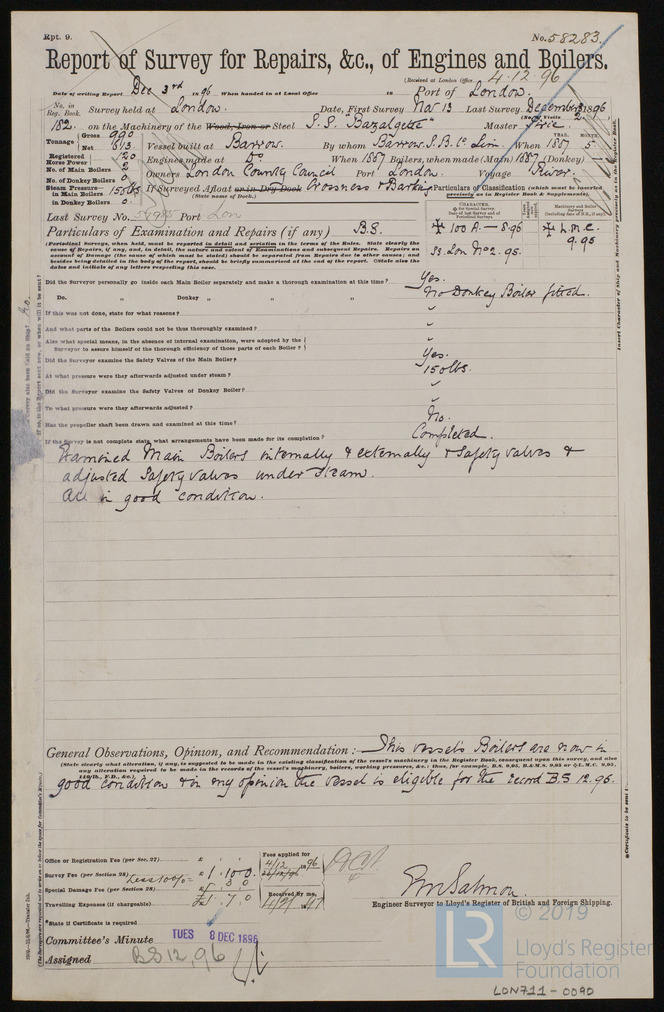 Rpt. 9.
No. 58283.
Report of Survey for Repairs, &c., of Engines and Boilers.
(Received at London Office 4.12.96
Date of writing Report Dec 3rd 1896 When handed in at Local Office 18 Port of London.
No. in Reg. Book. Survey held at London. Date, First Survey Nov 13 Last Survey December 1896
(No. of Visits
182. on the Machinery of the Wood, Iron or Steel S.S. "Bazalgette" Master
Tonnage Gross 990
Net 613
Vessel built at Barrow. By whom Barrow S.B. Co Lim. When 1887 5
YEAR. MONTH.
Registered Horse Power 120
Engines made at Do When 1887 Boilers, when made (Main) 1887 (Donkey)
No. of Main Boilers 2
Owners London County Council Port London. Voyage River.
No. of Donkey Boilers 0
Steam Pressure in Main Boilers 150 lbs
in Donkey Boilers 0.
If Surveyed Afloat or in Dry Dock Crossness & Barking
(State name of Dock.)
Particulars of Classification (which must be inserted precisely as in Register Book & Supplements).
Last Survey No. Port Lon
CHARACTER.
for Special Survey.
Date of last Survey and of Periodical Surveys.
Machinery and Boiler Surveys
(including date of N.B., if any).
✠ 100 A. — 5.96
SS. Lon No 2. 95.
✠ L.M.C.
9.95
Particulars of Examination and Repairs (if any) B.S.
(Periodical Surveys, when held, must be reported in detail and seriatim in the terms of the Rules. State clearly the
cause of Repairs, if any, and, in detail, the nature and extent of Examinations and subsequent Repairs. Repairs on
account of Damage (the cause of which must be stated) should be separated from Repairs due to other causes; and
besides being detailed in the body of the report, should be briefly summarised at the end of the report. State also the
dates and initials of any letters respecting this case.
Did the Surveyor personally go inside each Main Boiler separately and make a thorough examination at this time? Yes.
Do. „ Donkey „ „ „ No Donkey Boiler fitted.
If this was not done, state for what reasons?
And what parts of the Boilers could not be thoroughly examined?
Also what special means, in the absence of internal examination, were adopted by the
Surveyor to assure himself of the thorough efficiency of those parts of each Boiler?
Did the Surveyor examine the Safety Valves of the Main Boiler? Yes.
At what pressure were they afterwards adjusted under steam? 150 lbs.
Did the Surveyor examine the Safety Valves of Donkey Boiler?
To what pressure were they afterwards adjusted?
Has the propeller shaft been drawn and examined at this time? No.
If the Survey is not complete state what arrangements have been made for its completion? Completed.
Examined Main Boilers internally & externally & Safety valves &
adjusted Safety valves under steam.
All in good condition.
General Observations, Opinion, and Recommendation:— This vessel's Boilers are now in
(State clearly what alteration, if any, is suggested to be made in the existing classification of the vessel's machinery in the Register Book, consequent upon this survey, and also
any alteration required to be made in the records of the vessel's machinery, boilers, working pressures, &c.: thus, for example, B.S. 9,95, B.&M.S. 9,95 or ✠ L.M.C. 9,95,
140 lb., F.D., &c.)
good condition & in my opinion the vessel is eligible for the record B.S 12.96.
Office or Registration Fee (per Sec. 27) £
Survey Fee (per Section 28) less 10% £ 1.10.0
Special Damage Fee (per Section 28)
Travelling Expenses (if chargeable) £1.7.0
Fees applied for
4/12 1896
Received by me,
E. M. Salmon.
Engineer Surveyor to Lloyd's Register of British and Foreign Shipping.
State if Certificate is required
Committee's Minute TUES 8 DEC 1896
Assigned BS 12,96
Insert Character of Ship and Machinery precisely as in the Register Book.
© 2019
LR
Lloyd's Register
Foundation
LON711-0090